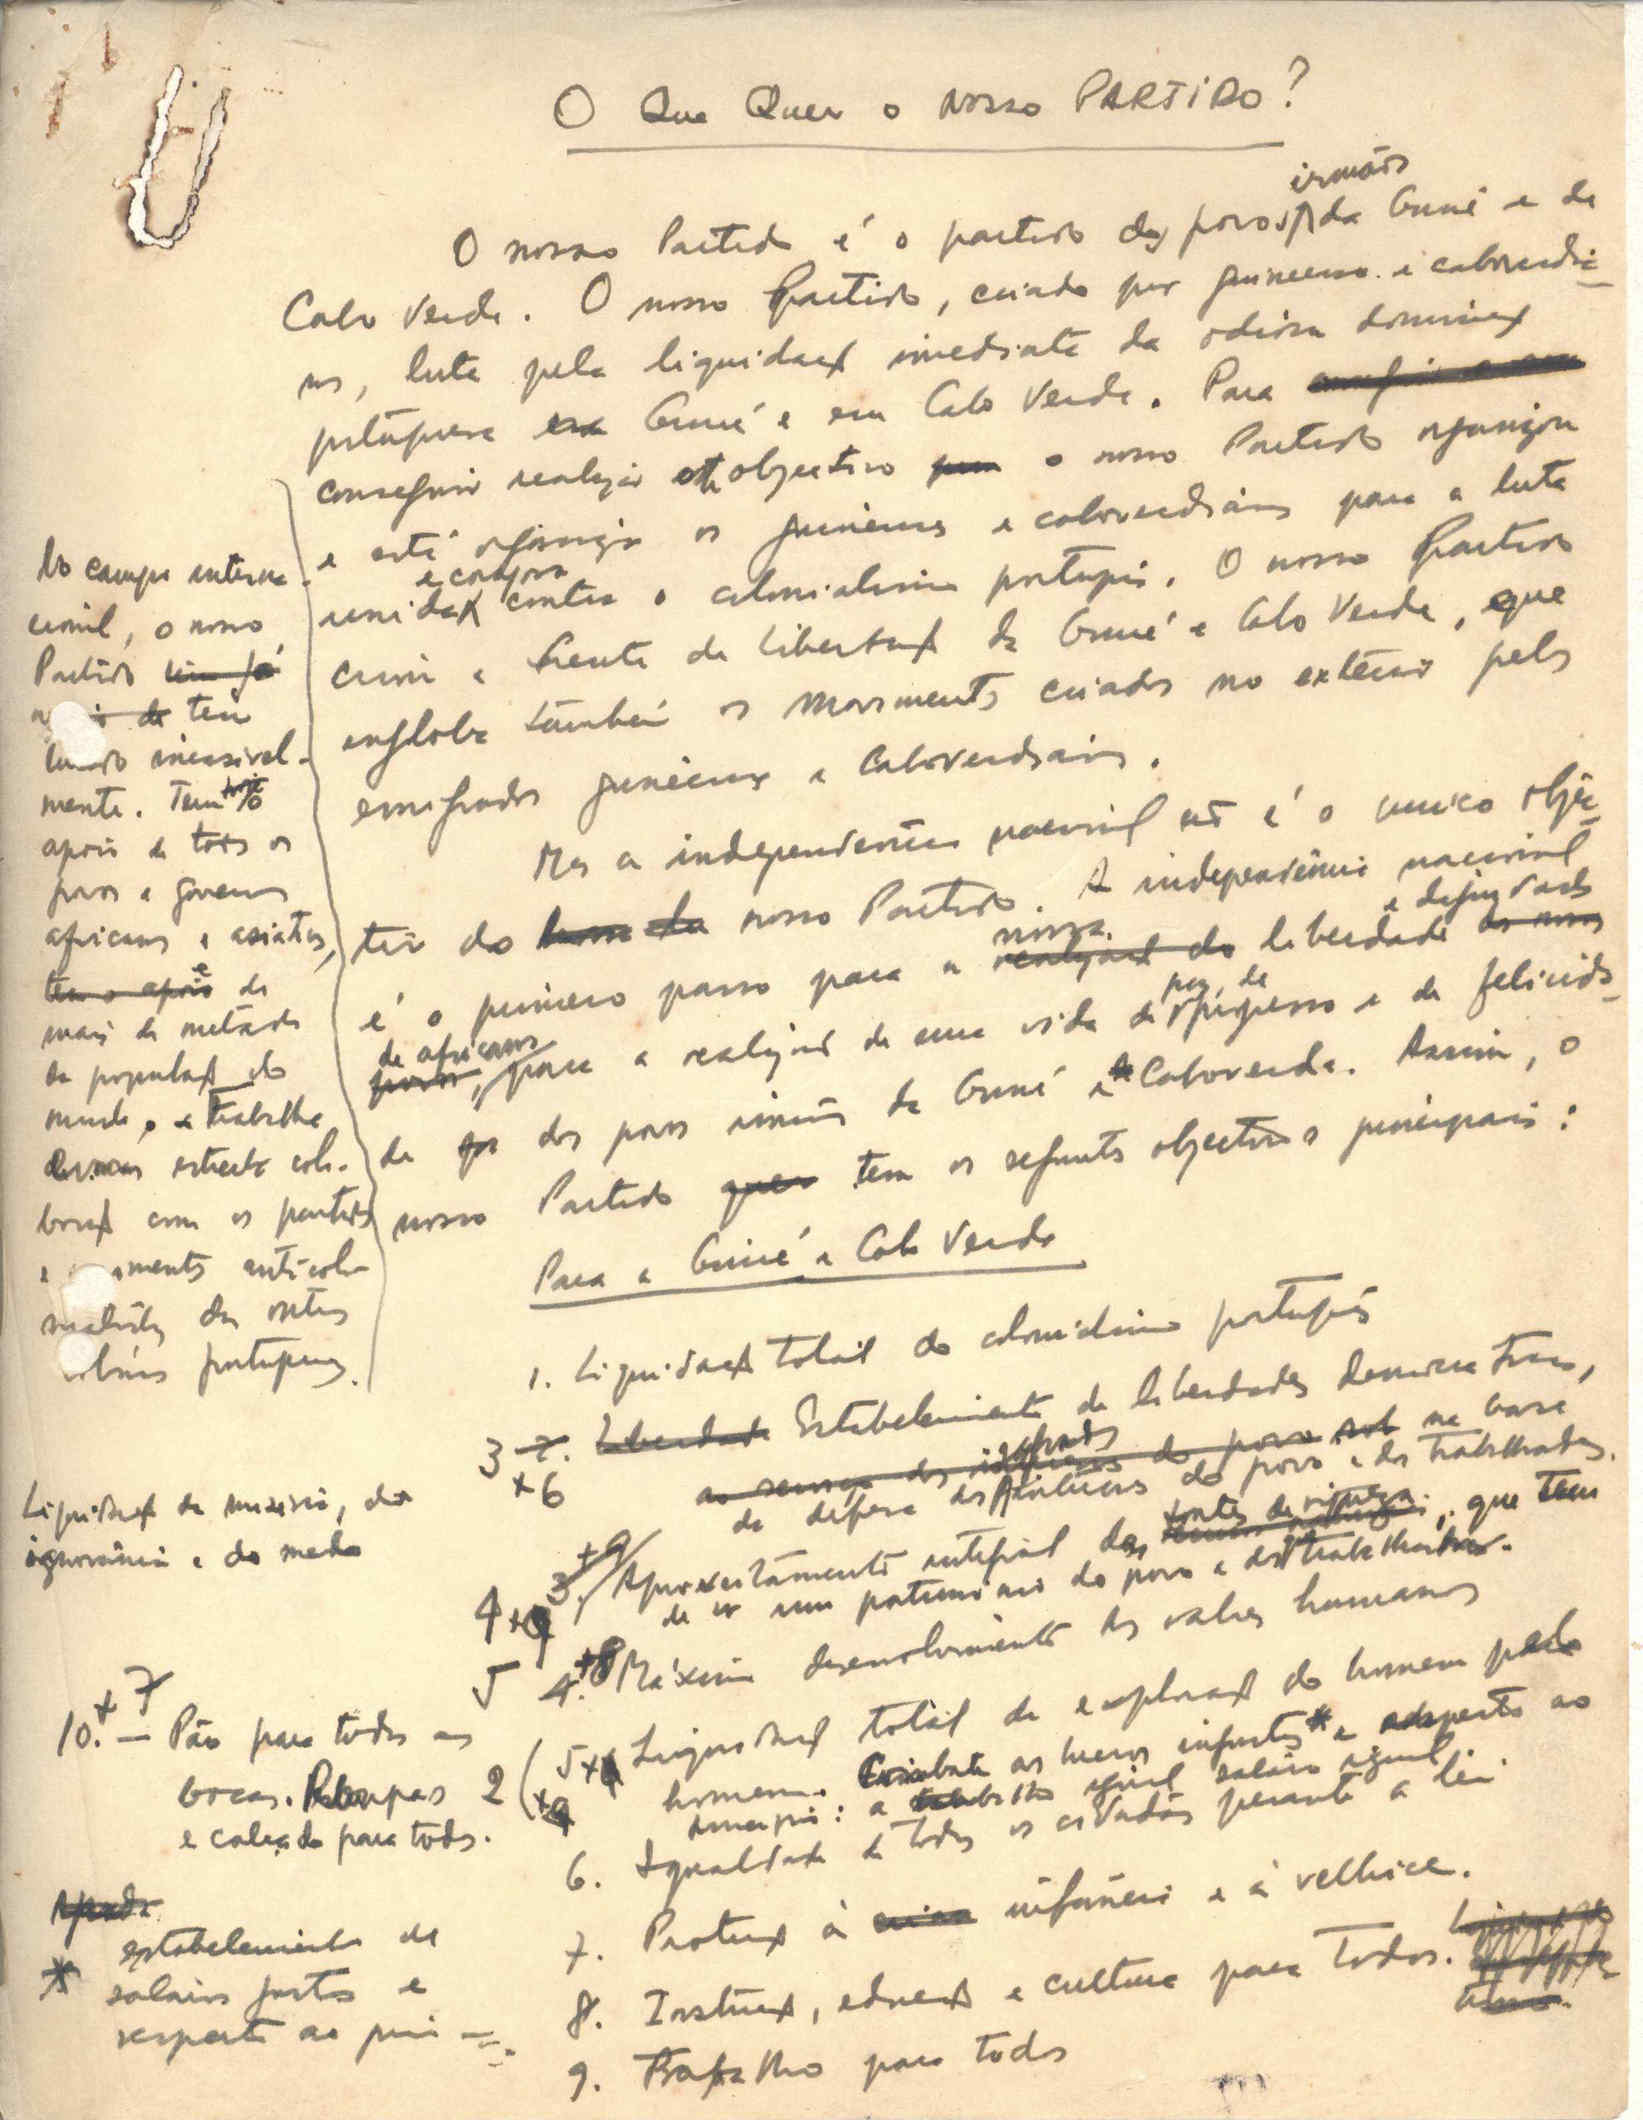 O Que Quer o nosso PARTIDO?
irmãos
O nosso Partido é o partido dos povos da Guiné e de
Cabo Verde. O nosso Partido, criado por guineenses e caboverdia-
nos, luta pela liquidação imediata da odiosa dominação
portuguesa na Guiné e em Cabo Verde. Para
conseguir realizar este objectivo o nosso Partido organizou
e está organizar os guineenses e caboverdianos para a luta
e corajosa
unida contra o colonialismo português. O nosso Partido
criou a Frente de Libertação da Guiné e Cabo Verde, que
engloba também os movimentos criados no exterior pelos
emigrados guineenses e caboverdianos.
Mas a independência nacional não é o unico objec-
tivo do nosso Partido. A independência nacional
nossa e dignidade
é o primeiro passo para a realização da liberdade os nossos
de africanos paz, de
povos, para a realização de uma vida de progresso e de felicida-
de dos povos irmãos da Guiné e Caboverde. Assim, o
nosso Partido quer tem os seguintes objectivos principais:
No campo interna-
cional, o nosso
Partido
tem
lutado incansavel-
mente. Tem hoje o
apoio de todos os
povos e governos
africanos e asiáticos,
tem o apoio e de
mais de metade
da população do
mundo, e trabalha
em estreita cola-
boração com os partidos
e movimentos anticolo-
nialistas das outras
colónias portuguesas.
Para a Guiné e Cabo Verde
1. Liquidação total do colonialismo português
3 2. Liberdade Estabelecimento de liberdades democráticas,
+6 ao serviço dos do povo sob na base
da defesa dos do povo e dos trabalhadores.
Liquidação da miséria, da
ignorância e do medo
fontes de riqueza
4 +9 3. Aproveitamento integral das, que tem
de ser um património do povo e dos trabalhadores.
5 4. +8 Máximo desenvolvimento dos valores humanos
2 5 Liquidação total da exploração do homem pelo
homem. Combate aos lucros injustos * e respeito ao
princípio: a trabalho igual salário igual.
6. Igualdade de todos os cidadãos perante a lei.
7. Protecção à infância e à velhice.
8. Instrução, educação e cultura para todos.
9. Trabalho para todos
10. +7 — Pão para todas as
bocas. Roupas
e calçado para todos.
* estabelecimento de
salários justos e
respeito ao prin-